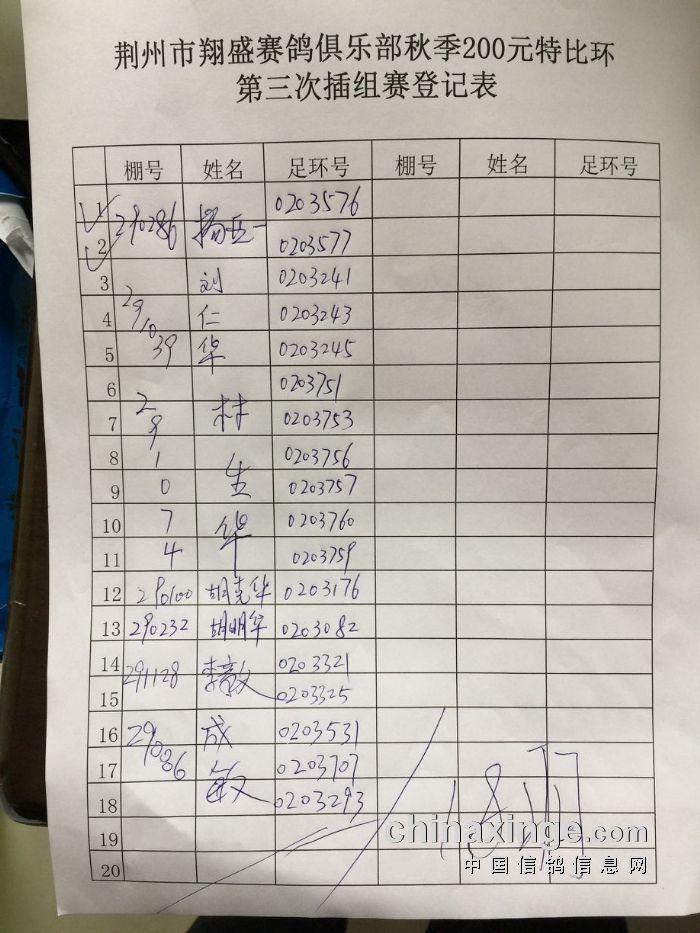 荆州市翔盛赛鸽俱乐部秋季200元特比环
第三次插组赛登记表
棚号 姓名 足环号 棚号 姓名 足环号
1 290286 杨 一 0203576
2 0203577
3 刘 0203241
4 29 仁 0203243
5 10 39 华 0203245
6 0203751
7 29 林 0203753
8 1 0203756
9 0 生 0203757
10 7 华 0203760
11 4 0203759
12 290100 胡克华 0203176
13 290232 胡明华 0203082
14 291128 李敏 0203321
15 0203325
16 290086 成 0203531
17 敏 0203707
18 0203293
19
20
18羽
chinaxinge.com
中国信鸽信息网